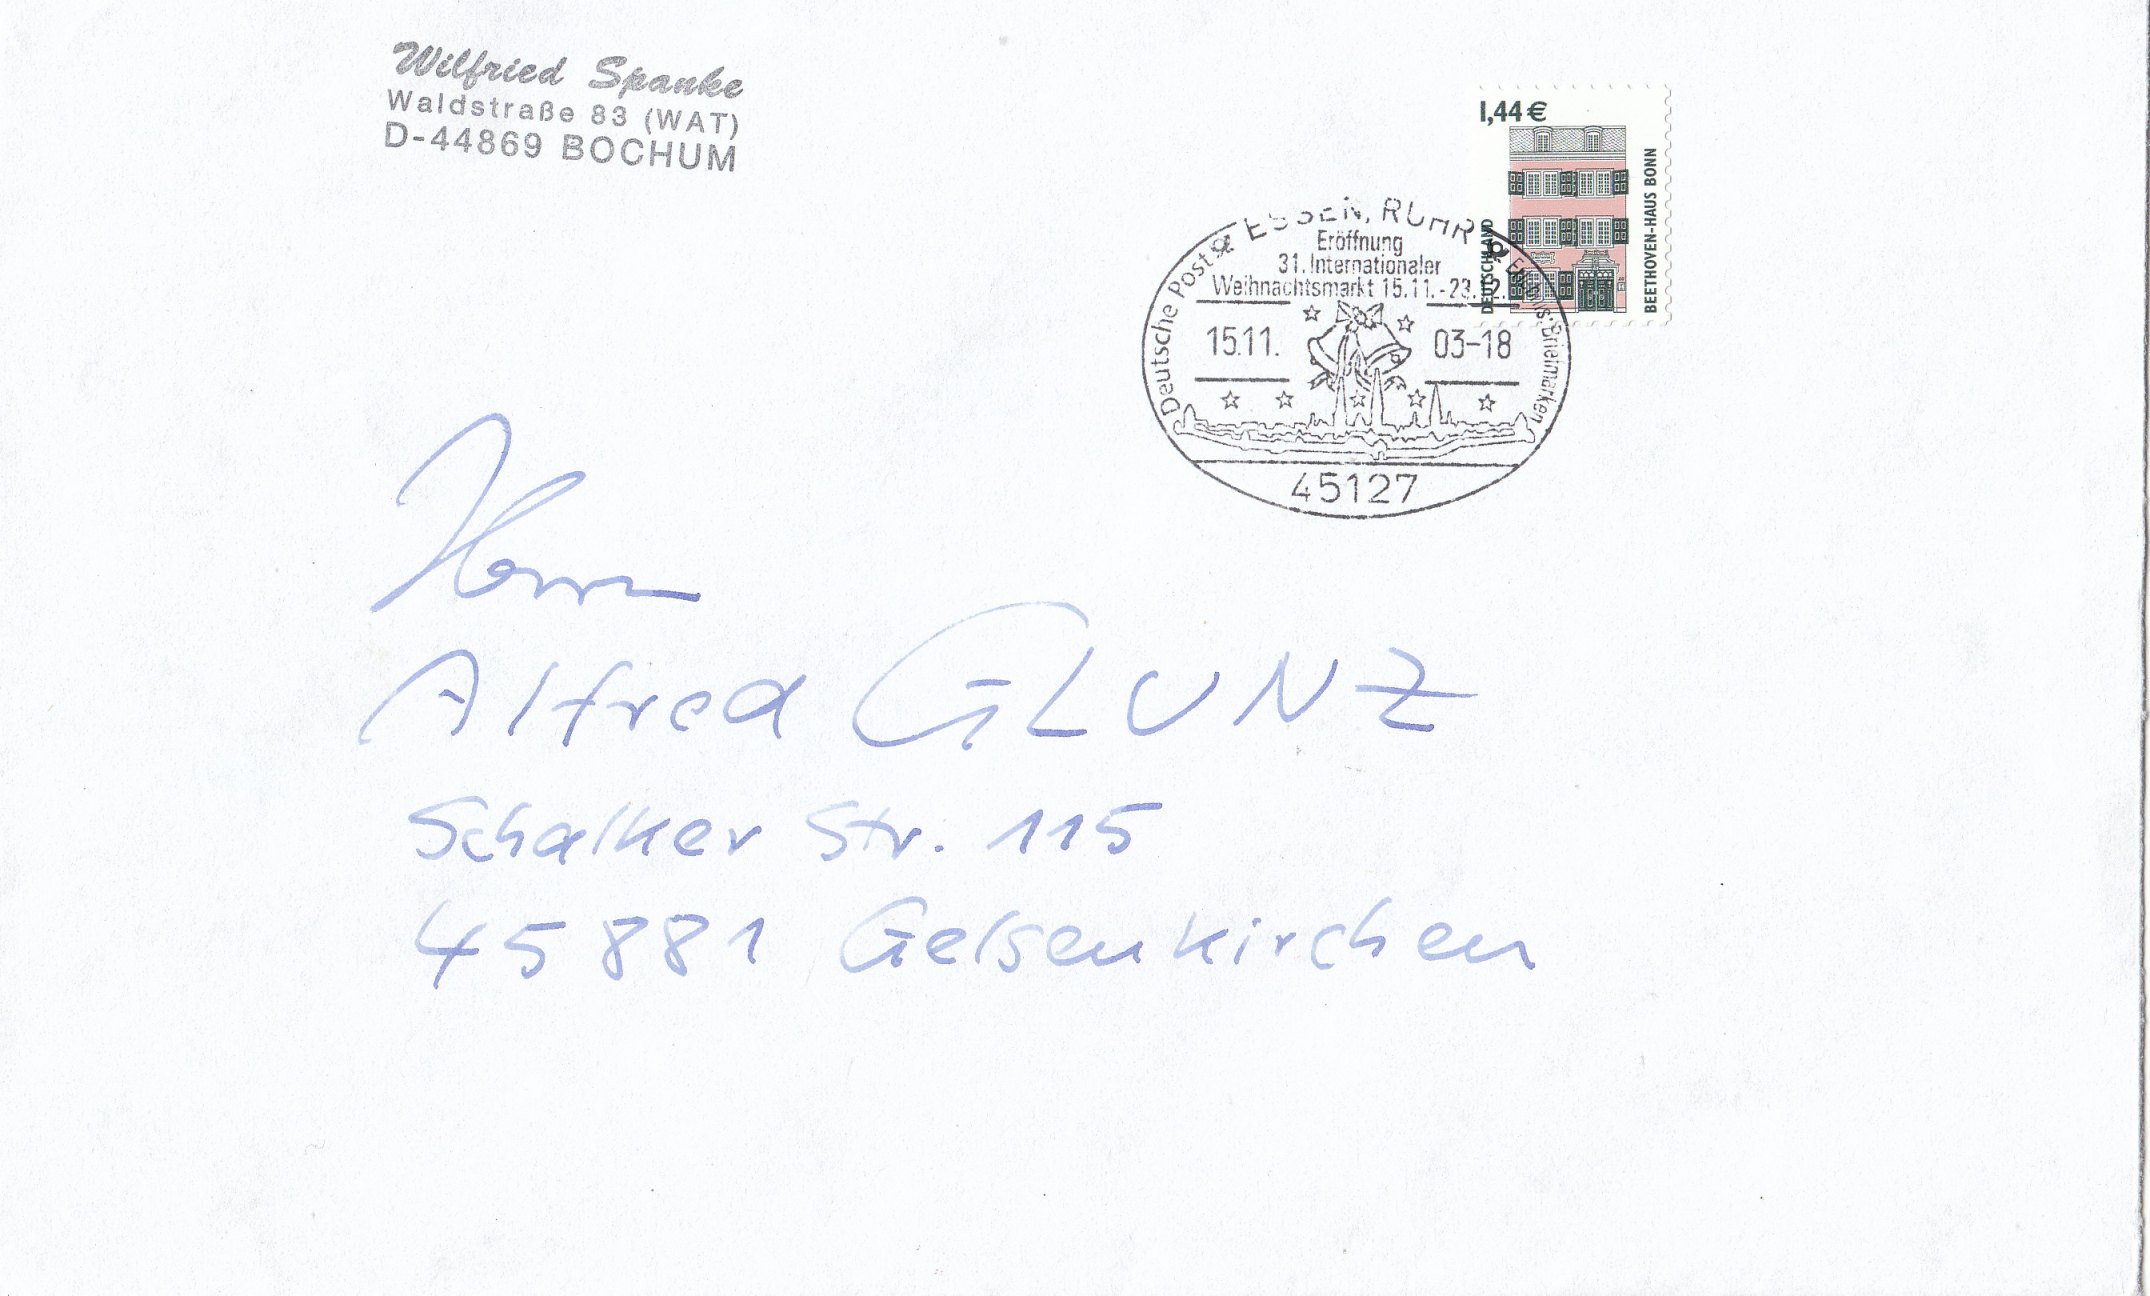 Wilfried Spanke
Waldstraße 83 (WAT)
D-44869 BOCHUM
1,44€
DEUTSCHLAND
BEETHOVEN-HAUS BONN
Deutsche Post ESSEN, RUHR Erlebnis: Briefmarken
Eröffnung
31. Internationaler
Weihnachtsmarkt 15.11.-23.12.
15.11. 03-18
45127
Herrn
Alfred GLUNZ
Schalker Str. 115
45881 Gelsenkirchen